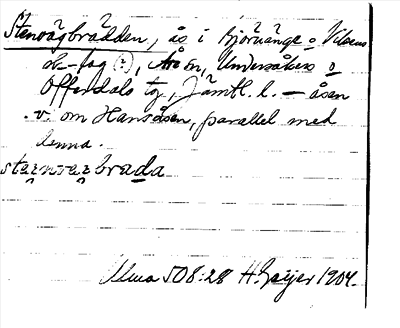 Stenvägbrädden, ås i Björänge o Vikens
sk-lag (?), Ås sn, Undersåkers o
Offerdals tg, Jämtl. l. — åsen
v. om Hansåsen, parallel med
denna.
stæ̣nvæ̣brada
Ulma 508:28 H. Geijer 1904.